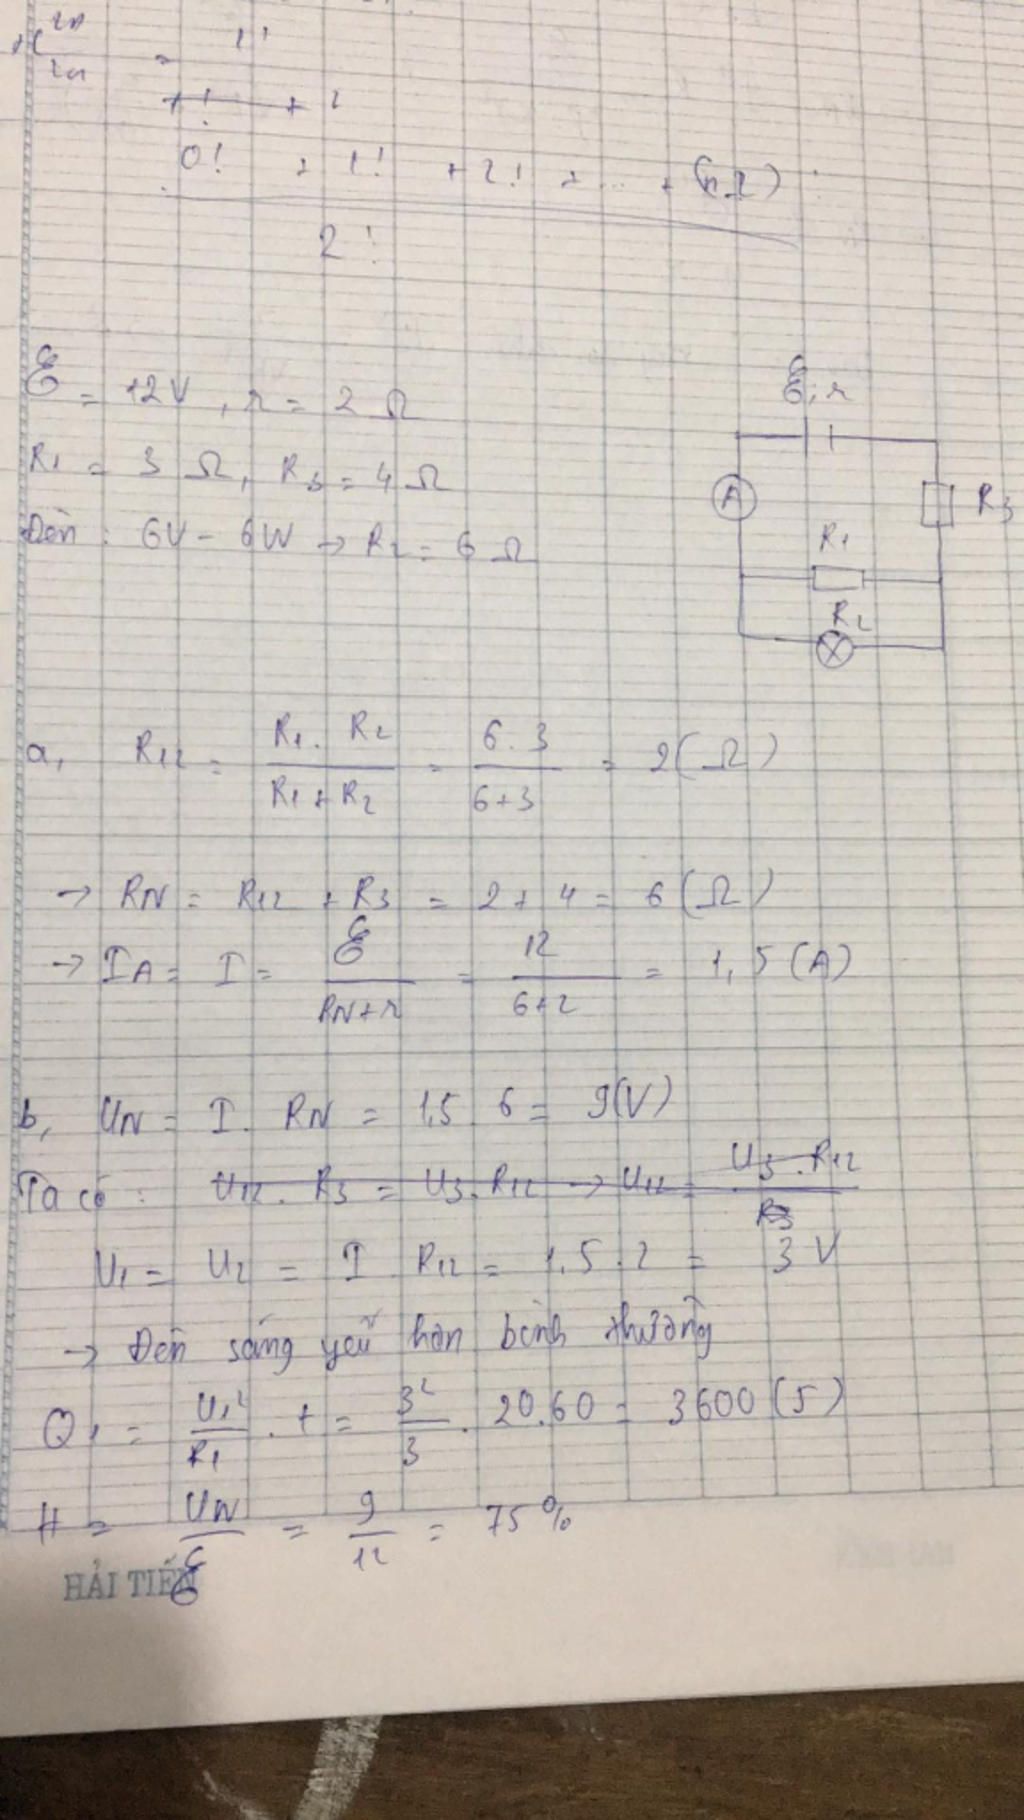 2n
2n = 1!
+ ! + 2
0! + 1! + 2! + ... + (n.1)
2!
ℰ = 12V, r = 2 Ω
R1 = 3 Ω, R3 = 4 Ω
Đèn : 6V - 6W → R2 = 6 Ω
ℰ, r
A
R3
R1
R2
a, R12 = R1. R2 / R1 + R2 = 6.3 / 6+3 = 2 (Ω)
→ RN = R12 + R3 = 2 + 4 = 6 (Ω)
→ IA = I = ℰ / RN+r = 12 / 6+2 = 1,5 (A)
b, UN = I. RN = 1,5 6 = 9(V)
Ta có : U12. R3 = U3. R12 → U12 = U3. R12 / R3
U1 = U2 = I R12 = 1,5.2 = 3 V
→ Đèn sáng yếu hơn bình thường
Q1 = U1² / R1 . t = 3² / 3 . 20.60 = 3600 (J)
H = UN / ℰ = 9 / 12 = 75 %
HẢI TIẾN